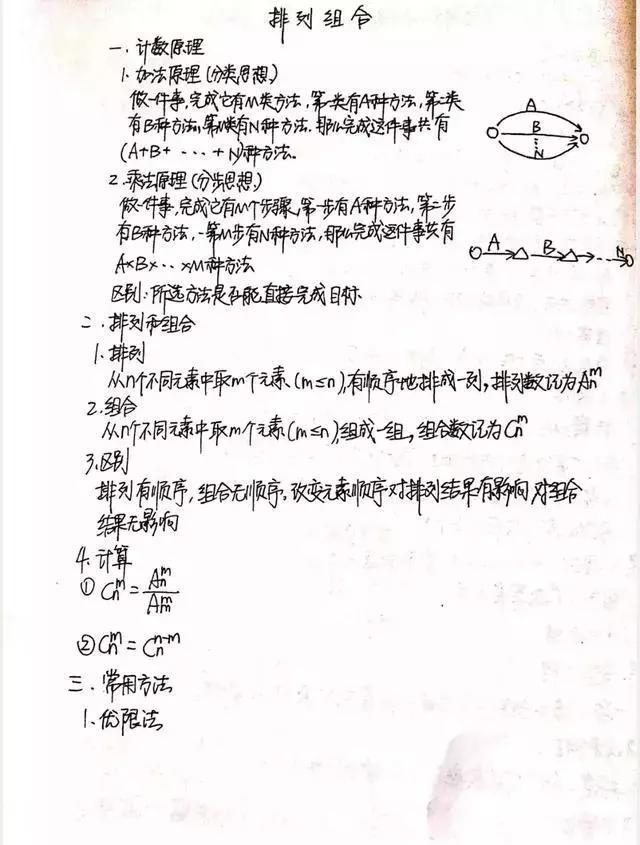 排列组合
一. 计数原理
1. 加法原理(分类思想)
做一件事,完成它有M类方法,第一类有A种方法,第二类
有B种方法,第M类有N种方法.那么完成这件事共有
(A+B+ ··· +N)种方法。
A
B
N
2. 乘法原理(分步思想)
做一件事,完成它有M个步骤,第一步有A种方法,第二步
有B种方法,··第M步有N种方法,那么完成这件事共有
A×B×···×M种方法
A B N
区别:所选方法是否能直接完成目标
二. 排列和组合
1. 排列
从n个不同元素中取m个元素(m≤n),有顺序地排成一列,排列数记为Aₙᵐ
2. 组合
从n个不同元素中取m个元素(m≤n),组成一组,组合数记为Cₙᵐ
3. 区别
排列有顺序,组合无顺序。改变元素顺序对排列结果有影响,对组合
结果无影响
4. 计算
① Cₙᵐ = Aₙᵐ / Aₘᵐ
② Cₙᵐ = Cₙⁿ⁻ᵐ
三. 常用方法
1. 优限法